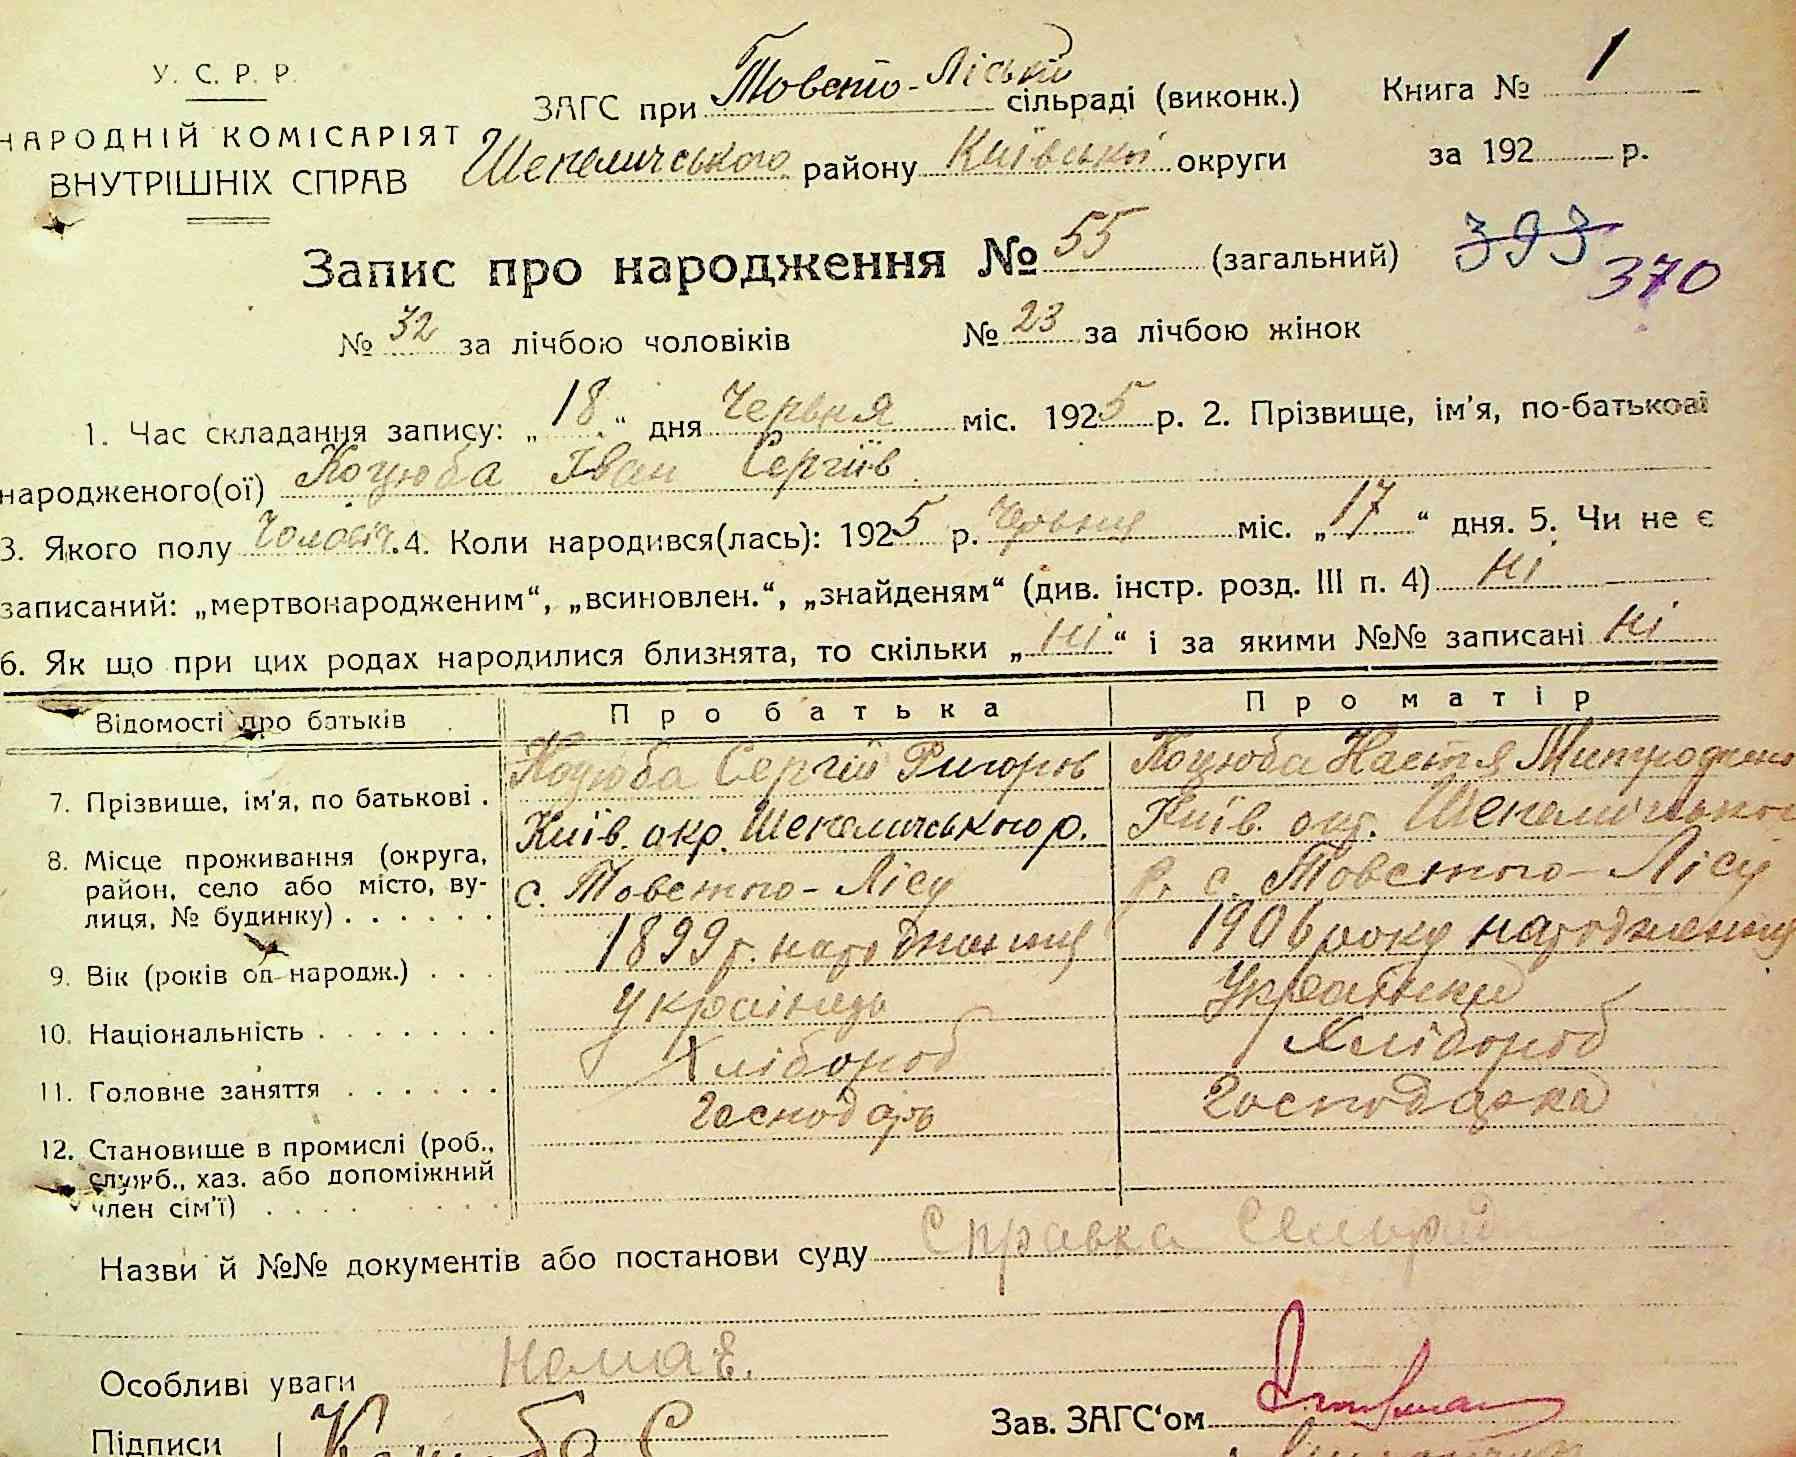 У. С. Р. Р.
НАРОДНІЙ КОМІСАРІЯТ
ВНУТРІШНІХ СПРАВ
ЗАГС при Товсто-Ліській сільраді (виконк.) Книга № 1
Шепеличського району Київської округи за 192 р.
Запис про народження № 55 (загальний) 393 370
№ 32 за лічбою чоловіків № 23 за лічбою жінок
1. Час складання запису: „18“ дня Червня міс. 1925 р. 2. Прізвище, ім'я, по-батькові
народженого(ої) Коцюба Іван Сергіїв
3. Якого полу Чоловіч. 4. Коли народився(лась): 1925 р. Червня міс. „17“ дня. 5. Чи не є
записаний: „мертвонародженим“, „всиновлен.“, „знайденям“ (див. інстр. розд. III п. 4) ні
6. Як що при цих родах народилися близнята, то скільки „ні“ і за якими №№ записані ні
Відомості про батьків Про батька Про матір
7. Прізвище, ім'я, по батькові . Коцюба Сергій Григоров Коцюба Настя
8. Місце проживання (округа, район, село або місто, вулиця, № будинку) . . . . . . Київ. окр. Шепеличського р. с. Товстого-Лісу Київ. окр. Шепеличського р. с. Товстого-Лісу
9. Вік (років од народж.) . . . 1899 р. народження 1906 року народження
10. Національність . . . . . . . українець Українка
11. Головне заняття . . . . . . Хлібороб Хлібороб
12. Становище в промислі (роб., служб., хаз. або допоміжний член сім'ї) . . . . . . . . . Господарь Господарка
Назви й №№ документів або постанови суду Справка Сельрад
Особливі уваги Немає.
Підписи Коцюба С
Зав. ЗАГС'ом